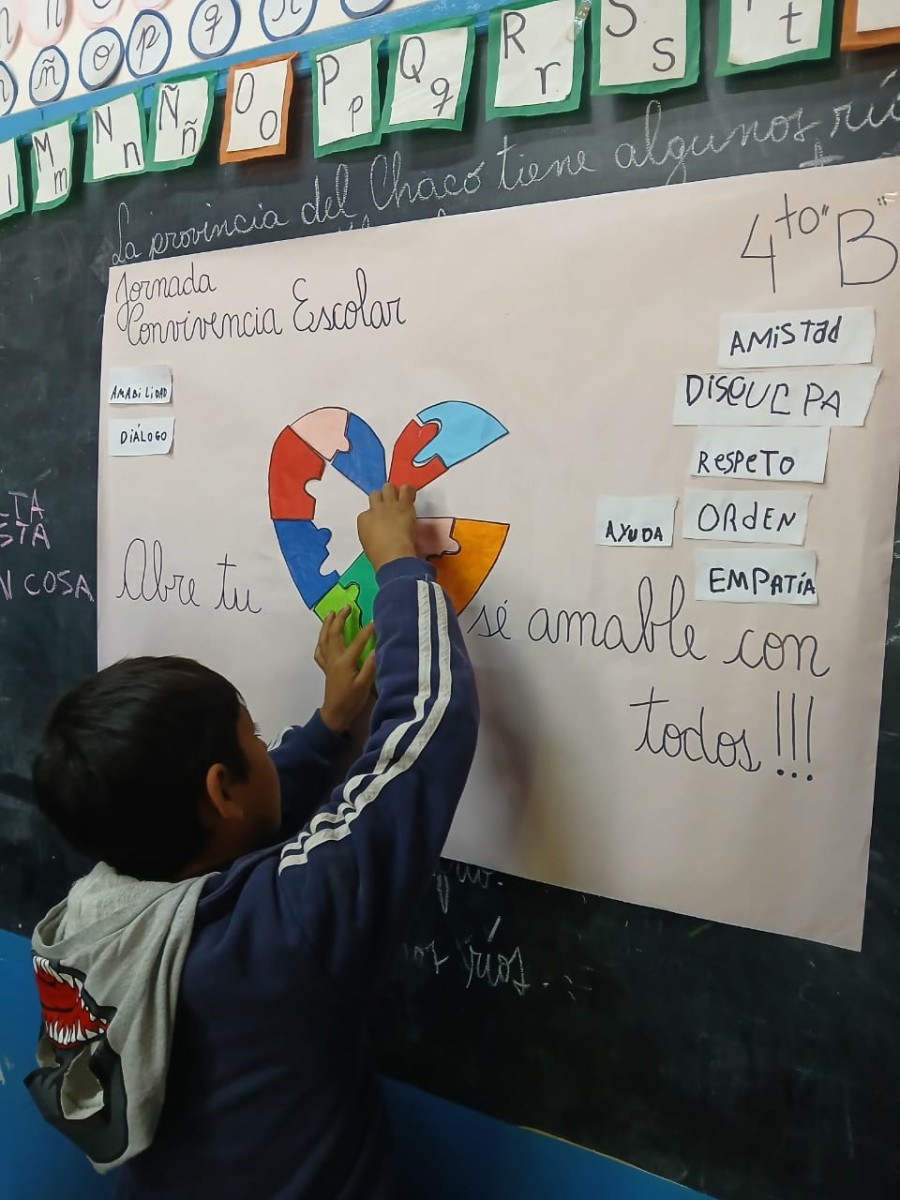 ñ o p q
M m N n Ñ ñ O o P p Q q R r S s t
La provincia del Chaco tiene algunos
Jornada
Convivencia Escolar
4to" B"
AMABILIDAD
DIÁLOGO
AMiSTad
DISCULPA
RespeTo
AYUDA
ORdEN
EMPATÍA
Abre tu
sé amable con
todos!!!
COSA
ríos.